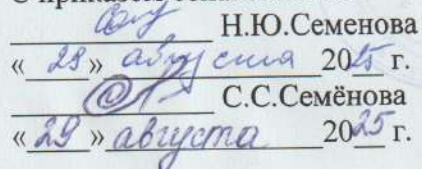 С приказом
Н.Ю.Семенова
« 29 » августа 2025 г.
С.С.Семёнова
« 29 » августа 2025 г.